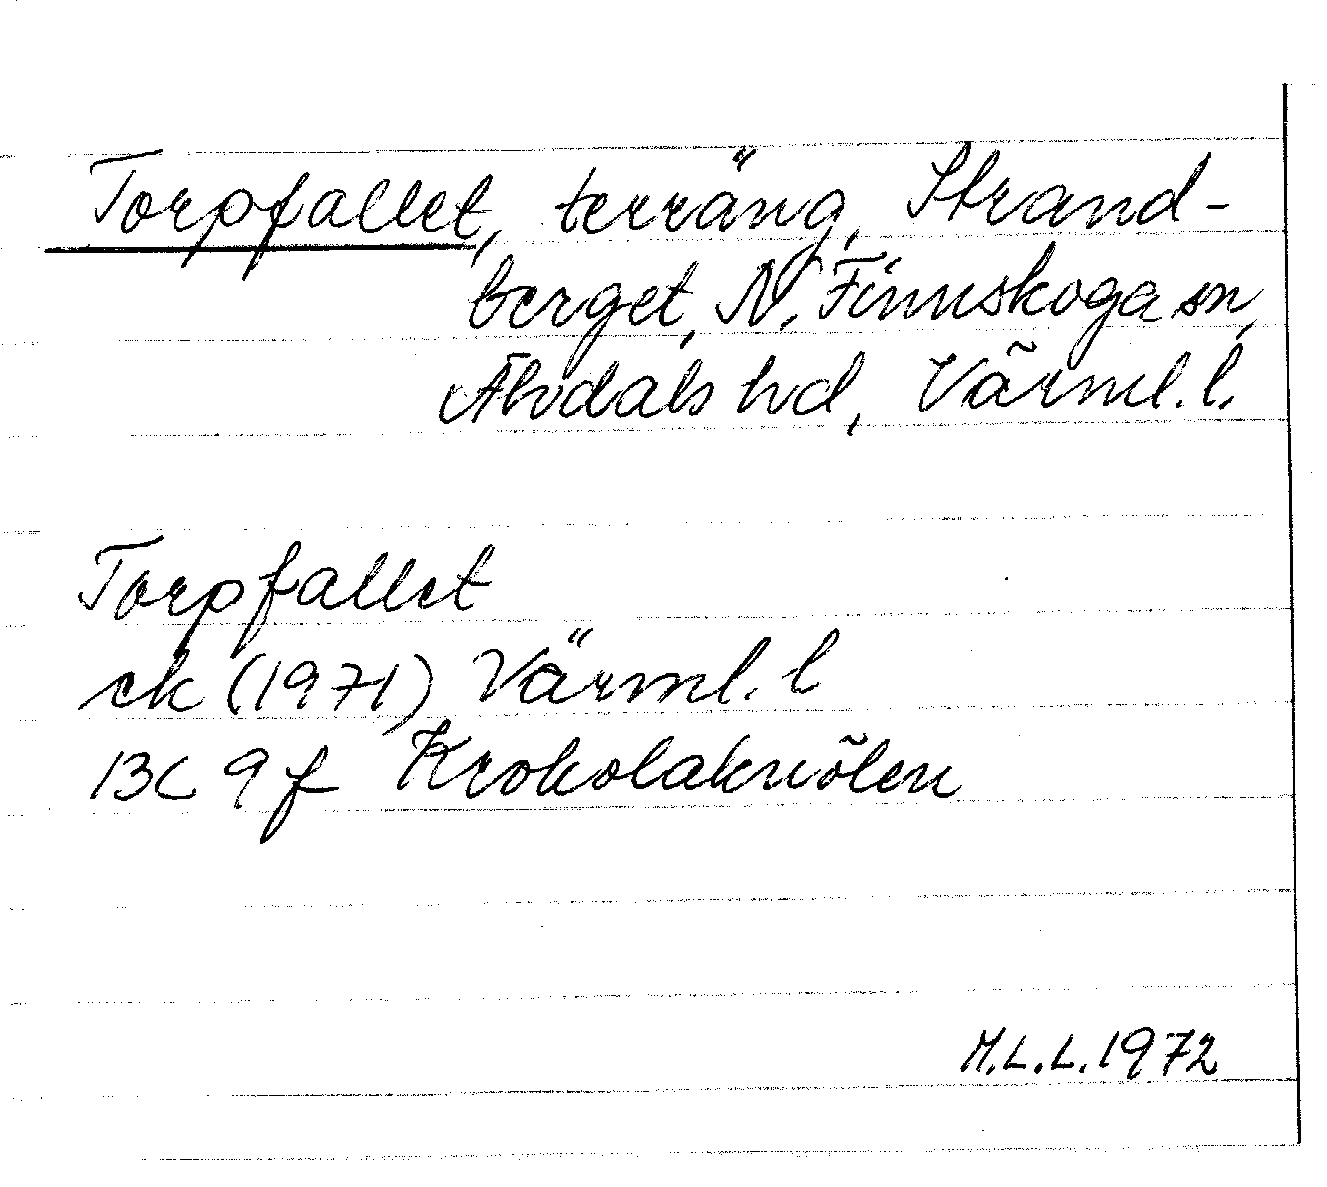 Torpfallet, terräng, Strand-
berget, N. Finnskoga sn,
Älvdals hd, Värml. l.
Torpfallet
ek (1971) Värml. l
13C 9f Krokolaknölen
M.L.L. 1972